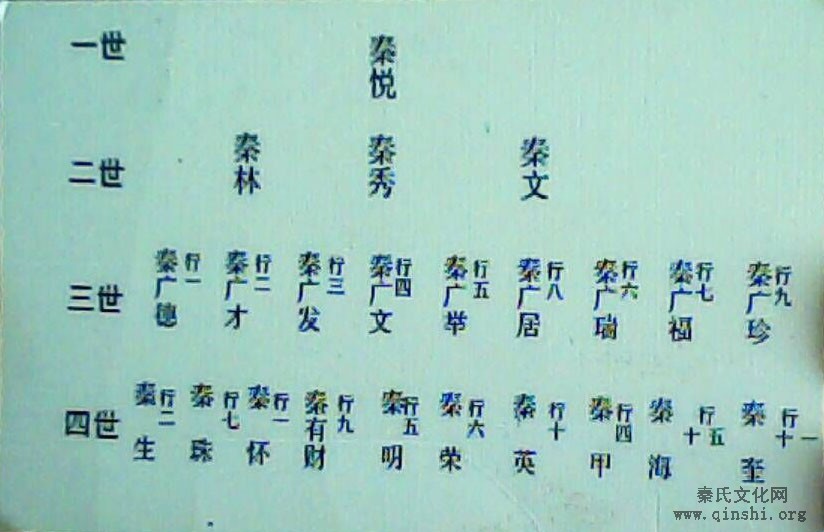 一世 秦悦
二世 秦林 秦秀 秦文
三世 秦广德 行一 秦广才 行二 秦广发 行三 秦广文 行四 秦广举 行五 秦广居 行八 秦广瑞 行六 秦广福 行七 秦广珍 行九
四世 秦生 行二 秦珠 行七 秦怀 行一 秦有财 行九 秦明 行五 秦荣 行六 秦英 行十 秦甲 行四 秦海 行十五 秦奎 行十一
秦氏文化网
www.qinshi.org